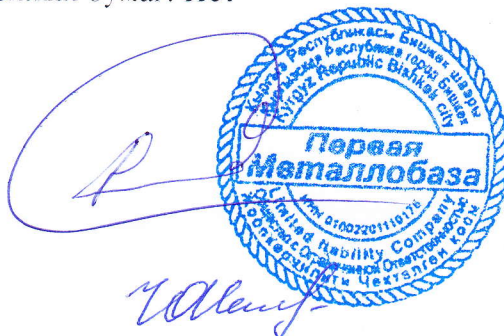 Кыргыз Республикасы Бишкек шаары
Кыргызская Республика город Бишкек
Kyrgyz Republic Bishkek city
Первая
Металлобаза
ИНН 01002201110176
Limited liability Company
Общество с Ограниченной Ответственностью
Жоопкерчилиги Чектелген коом